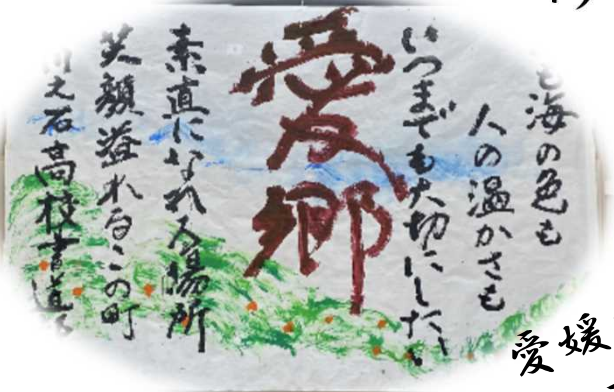 も海の色も
人の温かさも
いつまでも大切にしたい
愛郷
素直になれる場所
笑顔溢れるこの町
川之石高校書道部
愛媛